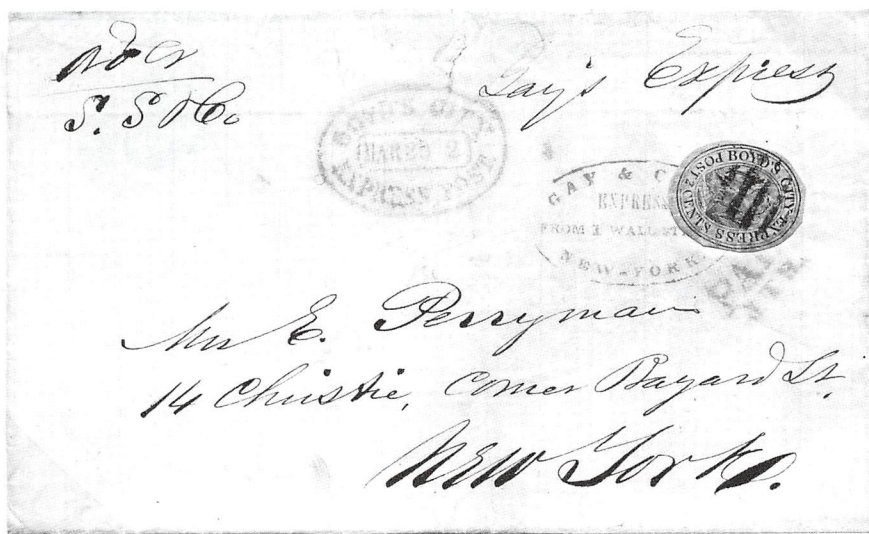 S. S & Co
Gay's Express
BOYD'S CITY
MAR 25 2
EXPRESS POST
GAY & C
EXPRESS
FROM 1 WALL ST
NEW-YORK
BOYD'S CITY EXPRESS 2 CTS POST
PAID
Mr E. Perryman
14 Christie, Corner Bayard St.
New York.